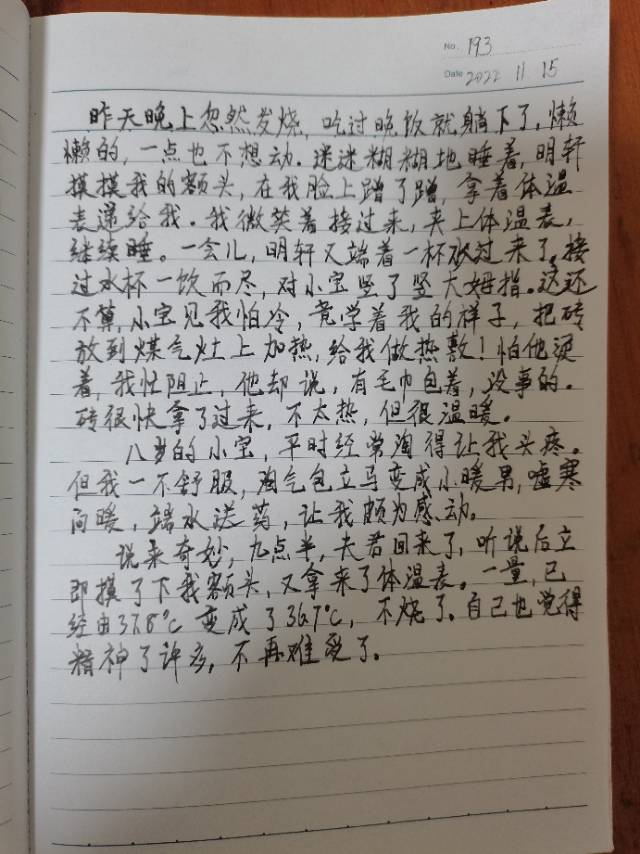 No. 193
Date 2022 11 15
昨天晚上忽然发烧，吃过晚饭就躺下了，懒
懒的，一点也不想动。迷迷糊糊地睡着，明轩
摸摸我的额头，在我脸上蹭了蹭，拿着体温
表递给我。我微笑着接过来，夹上体温表，
继续睡。一会儿，明轩又端着一杯水过来了，接
过水杯一饮而尽，对小宝竖了竖大姆指。这还
不算，小宝见我怕冷，竟学着我的样子，把砖
放到煤气灶上加热，给我做热敷！怕他烫
着，我忙阻止，他却说，有毛巾包着，没事的。
砖很快拿了过来，不太热，但很温暖。
八岁的小宝，平时经常淘得让我头疼。
但我一不舒服，淘气包立马变成小暖男，嘘寒
问暖，端水送药，让我颇为感动。
说来奇妙，九点半，夫君回来了，听说后立
即摸了下我额头，又拿来了体温表。一量，已
经由37.8℃变成了36.7℃，不烧了。自己也觉得
精神了许多，不再难受了。